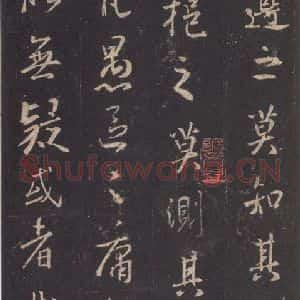 遵之莫知其
挹之莫測其
凡愚區〻庸
能無疑或者哉
Shufawang.CN